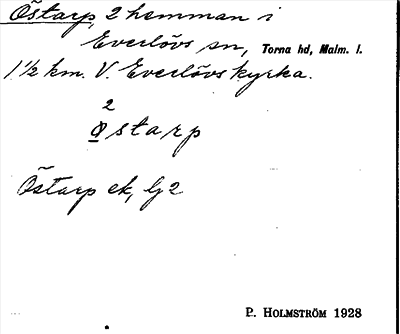 Östarp, 2 hemman i
Everlövs sn, Torna hd, Malm. l.
1 1/2 km. V. Everlövs kyrka.
2
östarp
Östarp ek, Gj 2
P. HOLMSTRÖM 1928